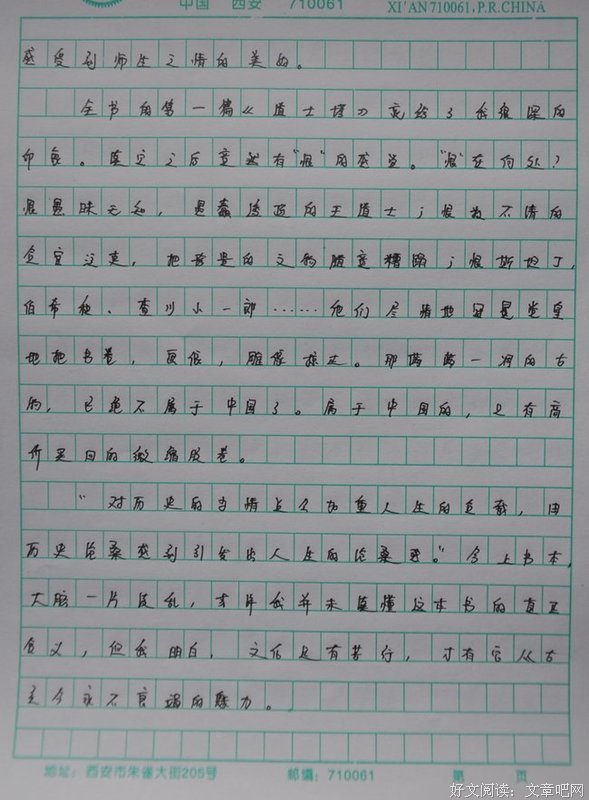 中国 西安 710061
XI'AN 710061, P.R. CHINA
感受到师生之情的美如。
全书的第一篇《道士塔》竟给了我很深的
印象。读完之后竟然有“恨”的感觉。“恨”在何处？
恨愚昧无知，愚蠢透顶的王道士；恨数不清的
贪官这莫，把珍贵的文物随意糟蹋；恨斯坦丁，
伯希和、吉川小一郎……他们尽情地冠冕堂皇
地把书卷，画像，雕像掠走。那满满一洞的古
的，已绝不属于中国了。属于中国的，只有高
价买回的微缩胶卷。
“对历史的多情总会加重人生的负载，由
历史沧桑感到引发出人生的沧桑感。”合上书本，
大脑一片混乱，或许我并未读懂这本书的真正
含义，但我明白，文化是有苦行，才有它从古
至今永不衰竭的魅力。
地址：西安市朱雀大街205号 邮编：710061 第 页
好文阅读：文章吧网